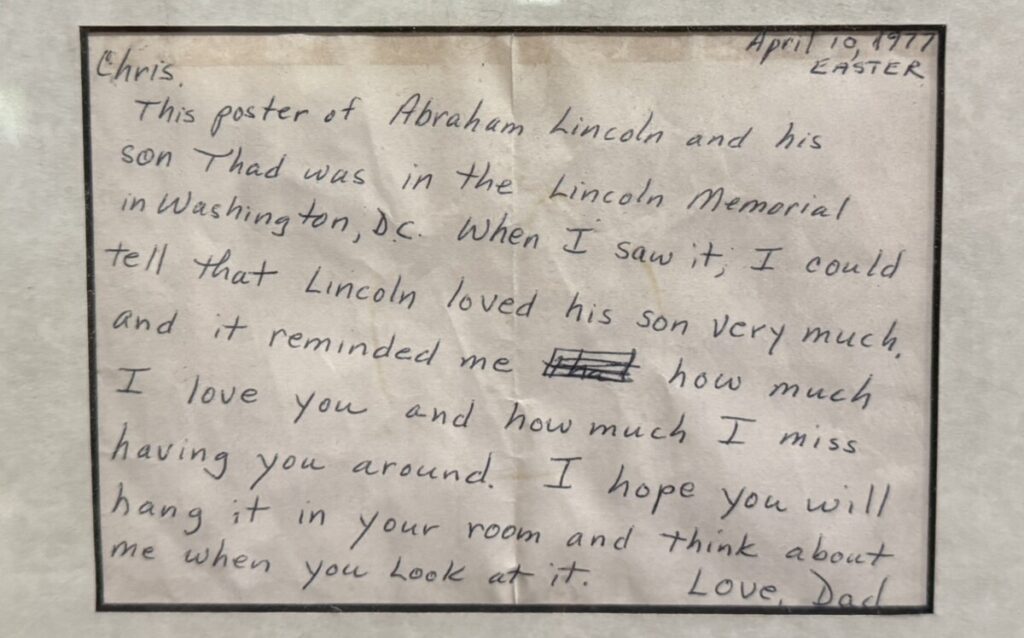 April 10, 1977
EASTER
Chris.
This poster of Abraham Lincoln and his
son Thad was in the Lincoln Memorial
in Washington, D.C. When I saw it, I could
tell that Lincoln loved his son very much.
and it reminded me that how much
I love you and how much I miss
having you around. I hope you will
hang it in your room and think about
me when you look at it. Love, Dad